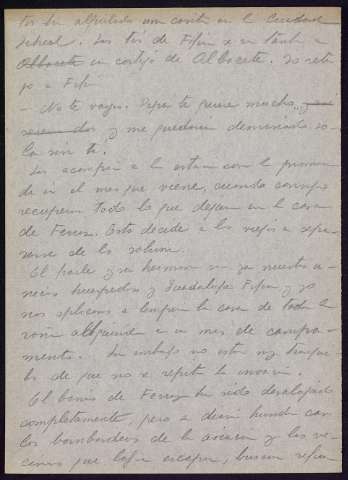 tos han alquilado un cuarto en la Ciudad
Lineal. Los tíos de Fifín se van también a
Albacete un cortijo de Albacete. Yo reten
go a Fifí
— No te vayas. Pepe te quiere mucho,
y me quedaría demasiado so
la sin ti.
Los acompaño a la estación con la promesa
de ir el mes que viene, cuando consiga
recuperar todo lo que dejan en la casa
de Ferraz. Esto decide a los viejos a sepa
rarse de los
El padre y su hermano son ya nuestros ú-
nicos huéspedes y Guadalupe Fifín y yo
nos aplicamos a limpiar la casa de toda la
roña adquirida en un mes de campa-
mento. Sin embargo no estoy muy tranqui-
la de que no se repita la invasión.
El barrio de Ferraz ha sido desalojado
completamente, pero a diario hunden casas
los bombardeos de la aviación y los ve-
cinos que logran escapar, buscan refu